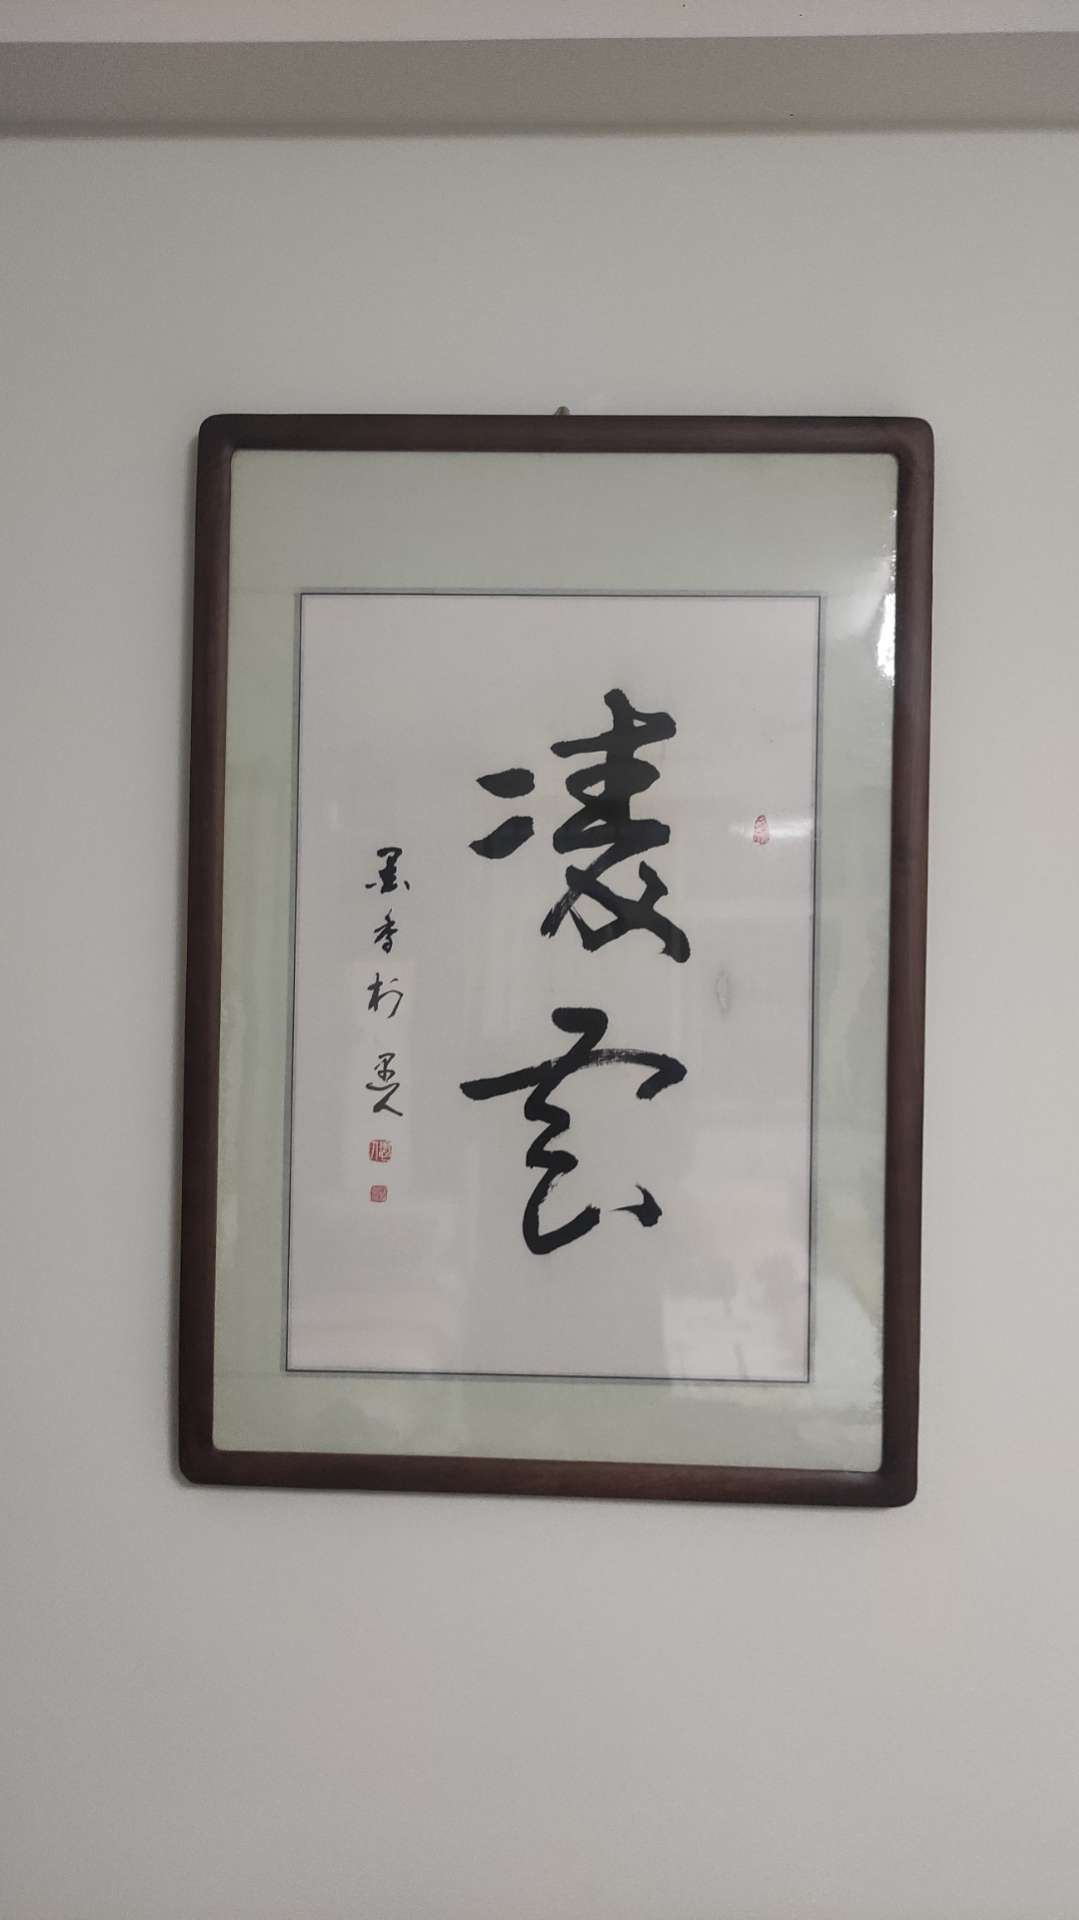 凌云
墨香村 墨人